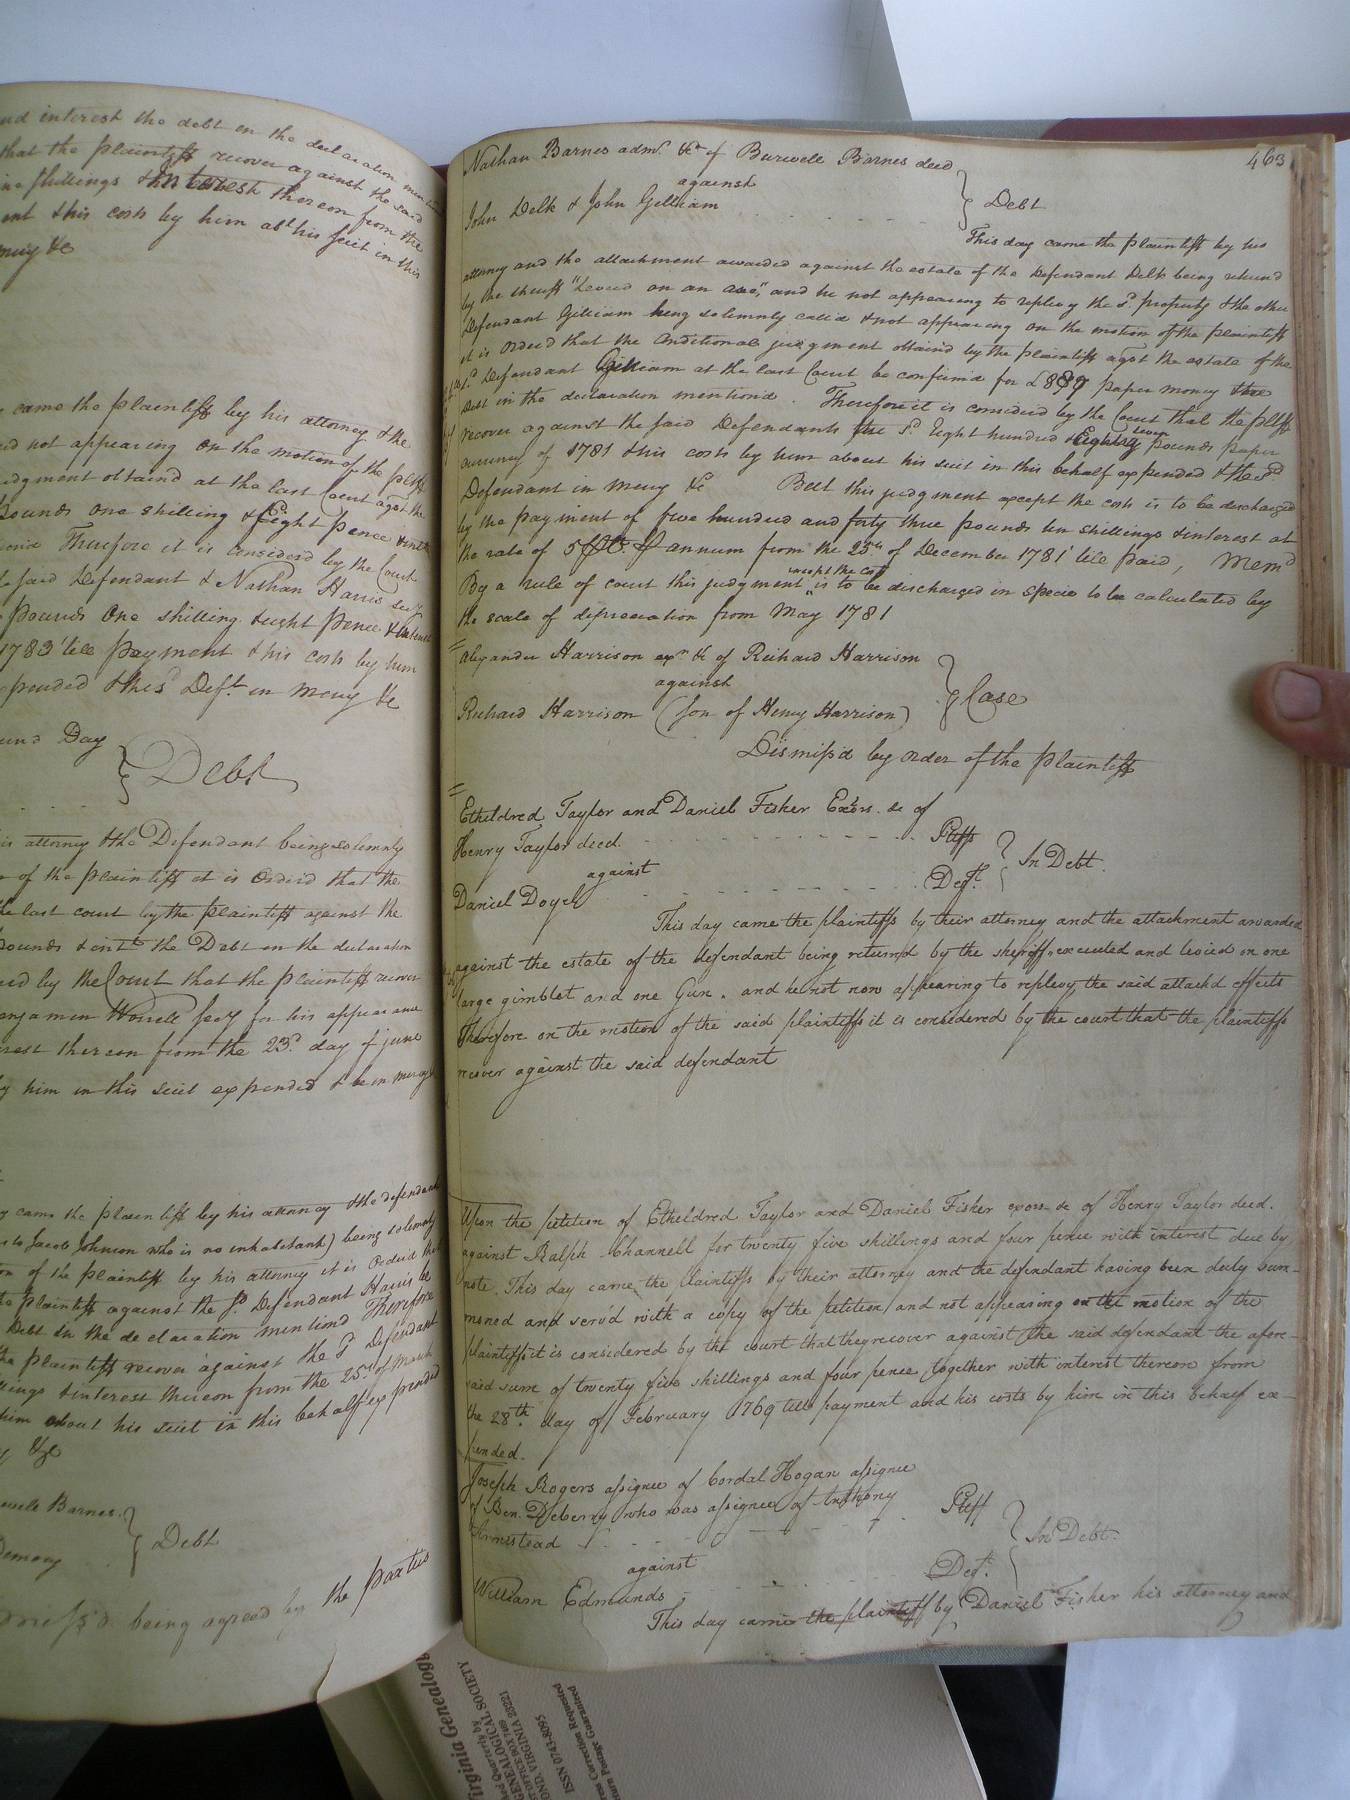 and interest the debt in the declaration
that the plaintiff recover against the said
shillings & interest thereon from the
& his costs by him abt his suit in this
mercy &c
came the plaintiff by his attorney & the
not appearing on the motion of the pltff
judgment obtaind at the last Court agst the
pounds one shilling & Eight pence
Therefore it is considerd by the Court
said Defendant & Nathan Harris
pounds One shilling & eight pence
1783 'till payment & his costs by him
& the sd Deft. in mercy &c
Day
Debt
attorney & the Defendant being solemnly
of the plaintiff it is Orderd that the
last court by the plaintiff against the
pounds & intt. the Debt in the declaration
by the Court that the plaintiff recover
Howell for his appearance
thereon from the 23d. day of June
him in this suit expended & be in mercy
came the plaintiff by his attorney & the defendant
Jacob Johnson who is no inhabitant) being solemnly
of the plaintiff by his attorney it is Orderd that
plaintiff against the sd. Defendant Harris be
Debt in the declaration mentiond Therefore
the plaintiff recover against the sd Defendant
& interest thereon from the 25th of March
him about his suit in this behalf expended
&c
Barnes.
Debt
being agreed by the parties
463
Nathan Barnes admr. &c of Burwell Barnes decd
against
John Delk & John Gilliam
Debt
This day came the plaintiff by his
attorney and the attachment awarded against the estate of the Defendant Delk being returnd
by the sheriff "Levied on an axe", and he not appearing to replevy the sd. property & the other
Defendant Gilliam being solemnly calld & not appearing on the motion of the plaintiff
it is Orderd that the Conditional judgment obtaind by the plaintiff agst the estate of the
sd Defendant Gilliam at the last Court be confirmd for £887 paper money the
Debt in the declaration mentiond. Therefore it is considerd by the Court that the pltff
recover against the said Defendants the sd. Eight hundred & Eighty seven pounds paper
currency of 1781 & his costs by him about his suit in this behalf expended & the sd
Defendant in mercy &c But this judgment except the costs is to be discharged
by the payment of five hundred and forty three pounds ten shillings & interest at
the rate of 5 annum from the 25th of December 1781 'till paid, Memd
By a rule of court this judgment except the cost is to be discharged in specie to be calculated by
the scale of depreciation from May 1781
Alexander Harrison exr &c of Richard Harrison
against
Richard Harrison (son of Henry Harrison)
Case
Dismiss'd by order of the plaintiff
Etheldred Taylor and Daniel Fisher Exors. &c of
Henry Taylor decd. Pltffs
against
Daniel Doyel Deft.
In Debt.
This day came the plaintiffs by their attorney and the attachment awarded
against the estate of the defendant being returnd by the sheriff, executed and levied on one
large gimblet and one Gun. and he not now appearing to replevy the said attachd effects
Therefore on the motion of the said plaintiffs it is considered by the court that the plaintiffs
recover against the said defendant
Upon the petition of Etheldred Taylor and Daniel Fisher exors &c of Henry Taylor decd.
against Ralph Channell for twenty five shillings and four pence with interest due by
note. This day came the plaintiffs by their attorney and the defendant having been duly sum-
moned and serv'd with a copy of the petition and not appearing on the motion of the
plaintiffs it is considered by the court that they recover against the said defendant the afore-
said sum of twenty five shillings and four pence together with interest thereon from
the 28th. day of February 1769 till payment and his costs by him in this behalf ex-
pended.
Joseph Rogers assignee of Cordal Hogan assignee
of Ben. Deberry who was assignee of Anthony
Armistead Pltff
against
William Edmunds Deft.
In Debt.
This day came the plaintiff by Daniel Fisher his attorney and
Virginia Genealog
Quarterly by
GENEALOGICAL SOCIETY
OFFICE BOX 7469
VIRGINIA 23221
ISSN 0743-8095
Correction Requested
Postage Guaranteed